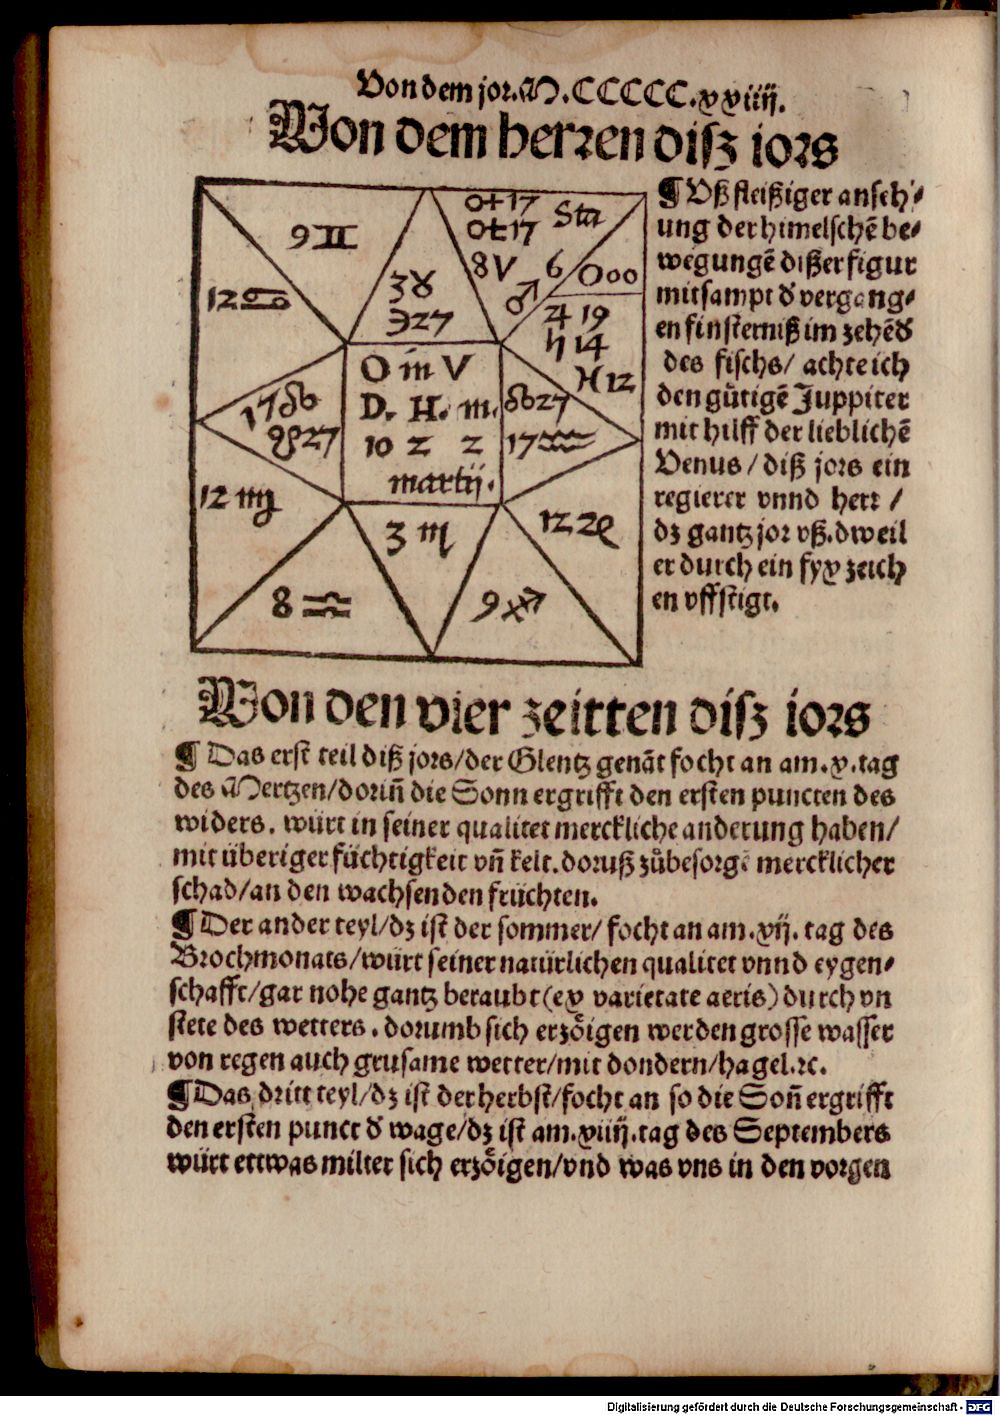 Von dem jor. M.CCCCC.xxiiij.
Von dem herren disz iors
9 ♊
♀ 17
☿ 17
Sta
8 V
6
♂
O 00
12 ♋
3 ♉
☽ 27
♃ 19
♄ 14
♓ 12
O in V
D. H. m.
10 2 2
martij.
17 ♌
27
27
17 ♒
12 ♍
3 ♏
12 ♑
8 ♎
9 ♐
¶ Vß fleißiger anseh⸗
ung der himelschē be⸗
wegungē dißer figur
mitsampt d' vergang⸗
en finsterniß im zehēd
des fischs/ achte ich
den gůtigē Juppiter
mit hilff der lieblichē
Venus/ diß jors ein
regierer vnnd herr /
dz gantz jor vß. dweil
er durch ein fyx zeich
en vffstigt.
Von den vier zeitten disz iors
¶ Das erst teil diß jors/der Glentz genāt focht an am.x.tag
des Mertzen/dorin̄ die Sonn ergrifft den ersten puncten des
widers. würt in seiner qualitet merckliche anderung haben/
mit überiger füchtigkeit vn̄ kelt.doruß zůbesorgē mercklicher
schad/an den wachsenden früchten.
¶ Der ander teyl/dz ist der sommer/ focht an am.xij. tag des
Brochmonats/würt seiner natürlichen qualitet vnnd eygen⸗
schafft/gar nohe gantz beraubt (ex varietate aeris) durch vn
stete des wetters. dorumb sich erzöigen werden grosse wasser
von regen auch grusame wetter/mit dondern/hagel.ꝛc.
¶ Das dritt teyl/dz ist der herbst/focht an so die Son̄ ergrifft
den ersten punct d' wage/dz ist am.xiiij.tag des Septembers
würt ettwas milter sich erzöigen/vnd was vns in den vorgen
Digitalisierung gefördert durch die Deutsche Forschungsgemeinschaft - DFG